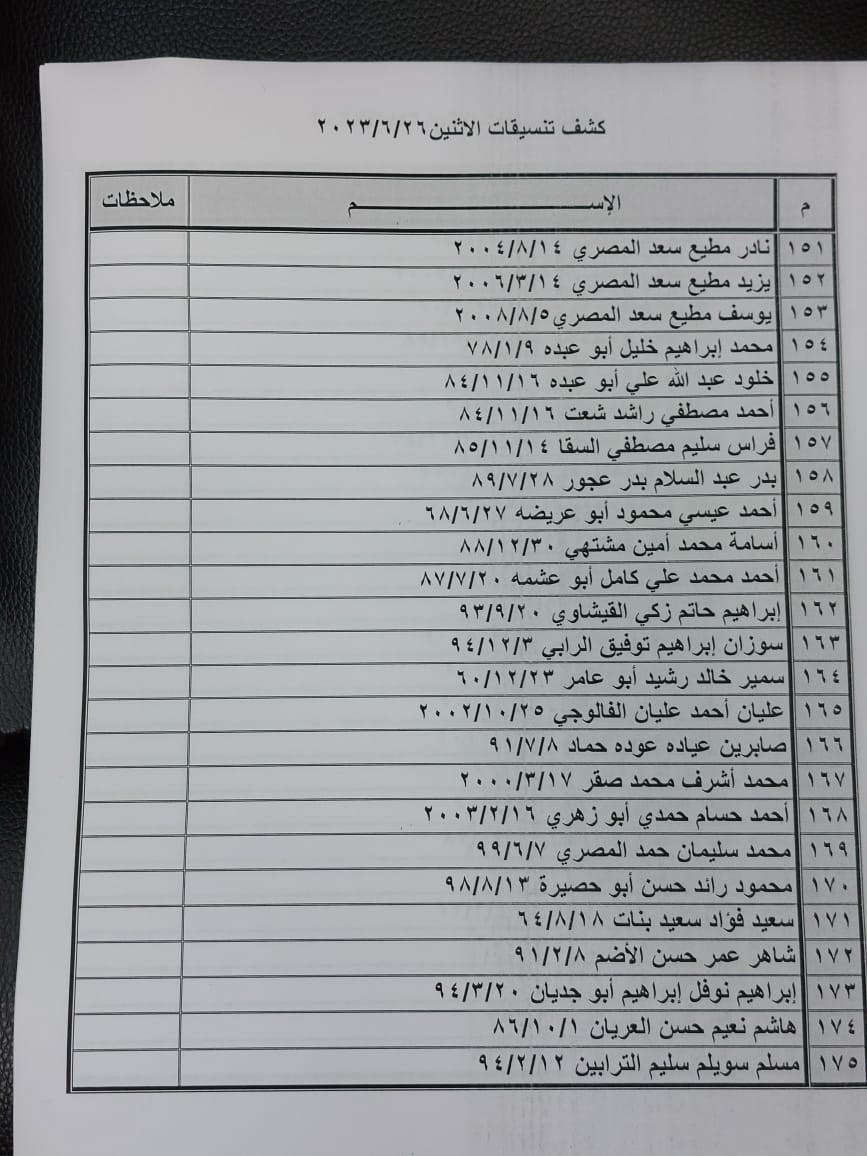 كشف تنسيقات الاثنين ٢٠٢٣/٦/٢٦
م الإســـــــــم ملاحظات
١٥١ نادر مطيع سعد المصري ٢٠٠٤/٨/١٤
١٥٢ يزيد مطيع سعد المصري ٢٠٠٦/٣/١٤
١٥٣ يوسف مطيع سعد المصري ٢٠٠٨/٨/٥
١٥٤ محمد إبراهيم خليل أبو عبده ٧٨/١/٩
١٥٥ خلود عبد الله علي أبو عبده ٨٤/١١/١٦
١٥٦ أحمد مصطفي راشد شعت ٨٤/١١/١٦
١٥٧ فراس سليم مصطفي السقا ٨٥/١١/١٤
١٥٨ بدر عبد السلام بدر عجور ٨٩/٧/٢٨
١٥٩ أحمد عيسي محمود أبو عريضه ٦٨/٦/٢٧
١٦٠ أسامة محمد أمين مشتهي ٨٨/١٢/٣٠
١٦١ أحمد محمد علي كامل أبو عشمه ٨٧/٧/٢٠
١٦٢ إبراهيم حاتم زكي القيشاوي ٩٣/٩/٢٠
١٦٣ سوزان إبراهيم توفيق الرابي ٩٤/١٢/٣
١٦٤ سمير خالد رشيد أبو عامر ٦٠/١٢/٢٣
١٦٥ عليان أحمد عليان الفالوجي ٢٠٠٢/١٠/٢٥
١٦٦ صابرين عياده عوده حماد ٩١/٧/٨
١٦٧ محمد أشرف محمد صقر ٢٠٠٠/٣/١٧
١٦٨ أحمد حسام حمدي أبو زهري ٢٠٠٣/٢/١٦
١٦٩ محمد سليمان حمد المصري ٩٩/٦/٧
١٧٠ محمود رائد حسن أبو حصيرة ٩٨/٨/١٣
١٧١ سعيد فؤاد سعيد بنات ٦٤/٨/١٨
١٧٢ شاهر عمر حسن الأضم ٩١/٢/٨
١٧٣ إبراهيم نوفل إبراهيم أبو جديان ٩٤/٣/٢٠
١٧٤ هاشم نعيم حسن العريان ٨٦/١٠/١
١٧٥ مسلم سويلم سليم الترابين ٩٤/٢/١٢